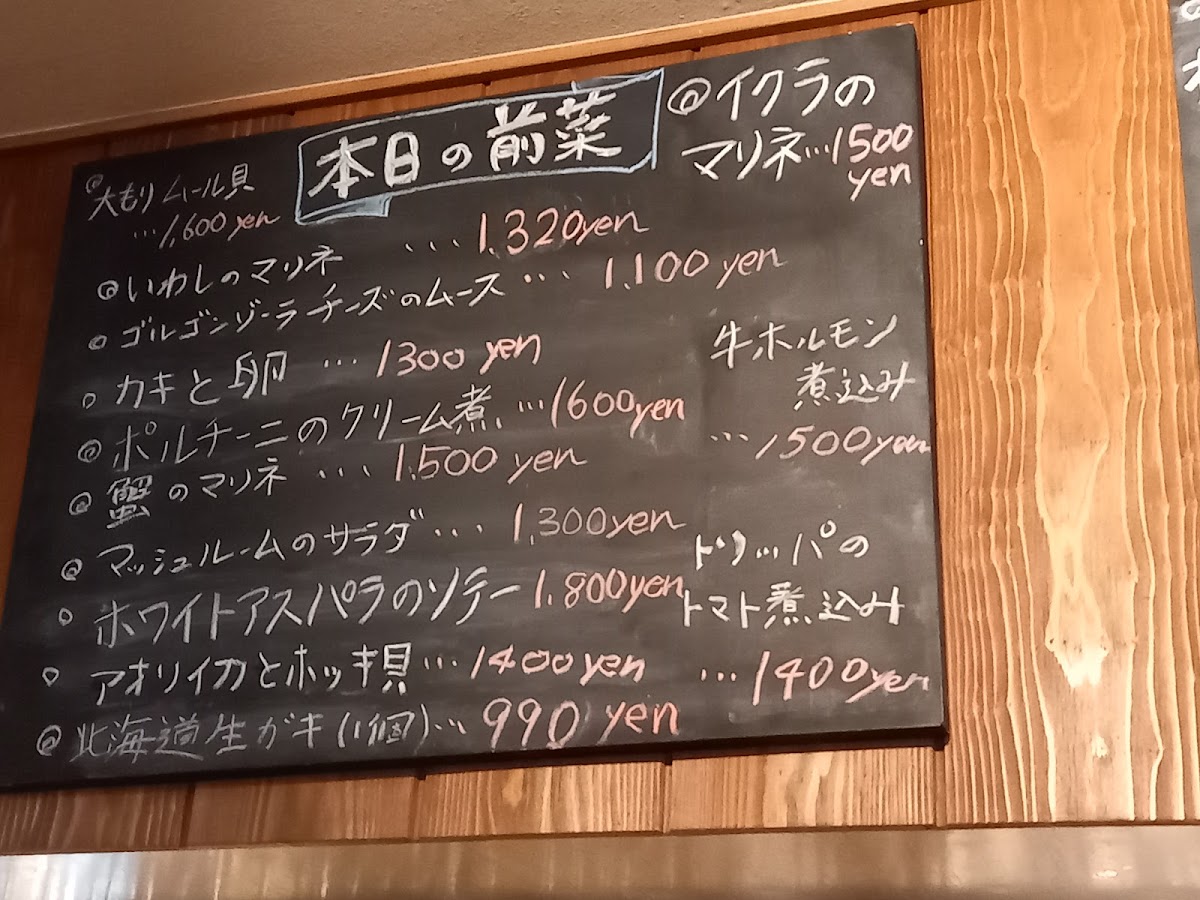 本日の前菜
@大もりムール貝
…1,600yen
@いわしのマリネ … 1.320yen
○ゴルゴンゾーラチーズのムース … 1.100 yen
○カキと卵 … 1300 yen
@ポルチーニのクリーム煮 …1600yen
@蟹のマリネ … 1.500 yen
@マッシュルームのサラダ … 1,300yen
○ホワイトアスパラのソテー 1.800yen
○アオリイカとホッキ貝 …1400yen
@北海道生ガキ(1個)… 990 yen
@イクラの
マリネ…1500
yen
牛ホルモン
煮込み
…1500yen
トリッパの
トマト煮込み
…1400yen